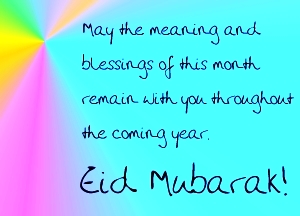 May the meaning and
blessings of this month
remain with you throughout
the coming year.
Eid Mubarak!